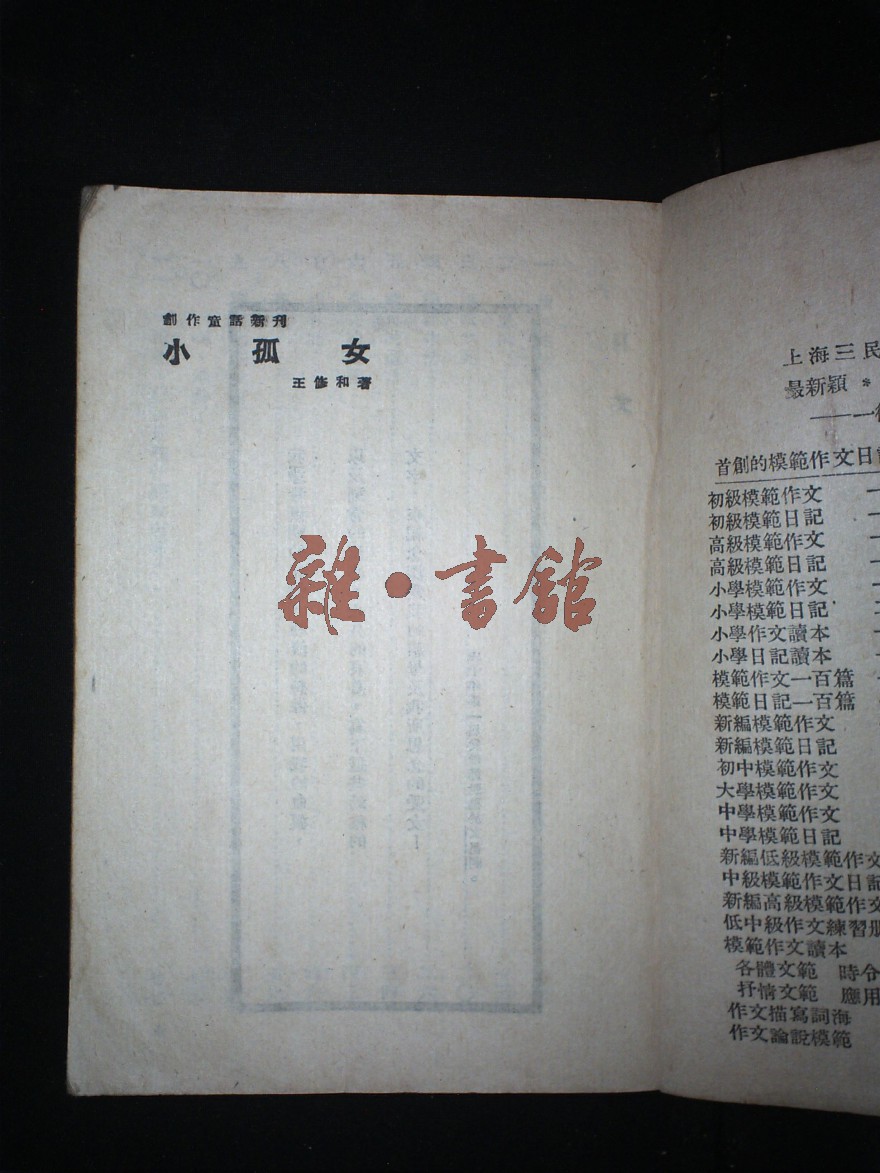 創作童話新刊
小孤女
王修和著
雜·書館
上海三民
最新穎 *
首創的模範作文日記
初級模範作文
初級模範日記
高級模範作文
高級模範日記
小學模範作文
小學模範日記
小學作文讀本
小學日記讀本
模範作文一百篇
模範日記一百篇
新編模範作文
新編模範日記
初中模範作文
大學模範作文
中學模範作文
中學模範日記
新編低級模範作文
中級模範作文日記
新編高級模範作文
低中級作文練習
模範作文讀本
各體文範 時令
抒情文範 應用
作文描寫詞海
作文論說模範